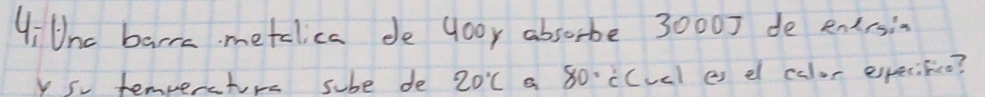 4; Una barra metalica de 400g absorbe 3000J de energia
y su temperatura sube de 20°C a 80. ¿Cual es el calor especifico?